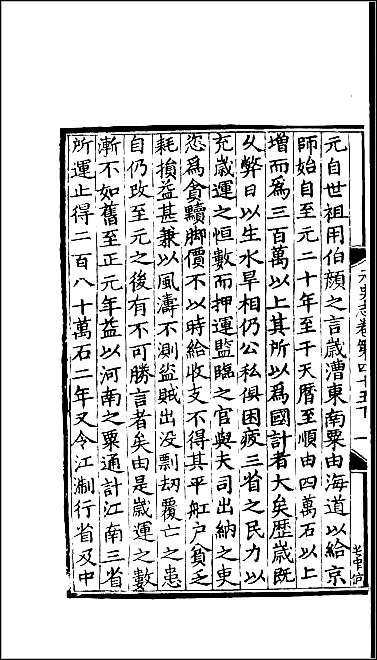 元自世祖用伯顔之言歲漕東南粟由海道以給京
師始自至元二十年至于天曆至順由四萬石以上
增而爲三百萬以上其所以爲國計者大矣歷歲既
乆弊日以生水旱相仍公私俱困疲三省之民力以
充歲運之恒數而押運監臨之官與夫司出納之吏
恣爲貪黷脚價不以時給收支不得其平舡户貧乏
耗損益甚兼以風濤不測盜賊出没剽刼覆亡之患
自仍改至元之後有不可勝言者矣由是歲運之數
漸不如舊至正元年益以河南之粟通計江南三省
所運止得二百八十萬石二年又令江淛行省及中
元史志卷第四十五下 一